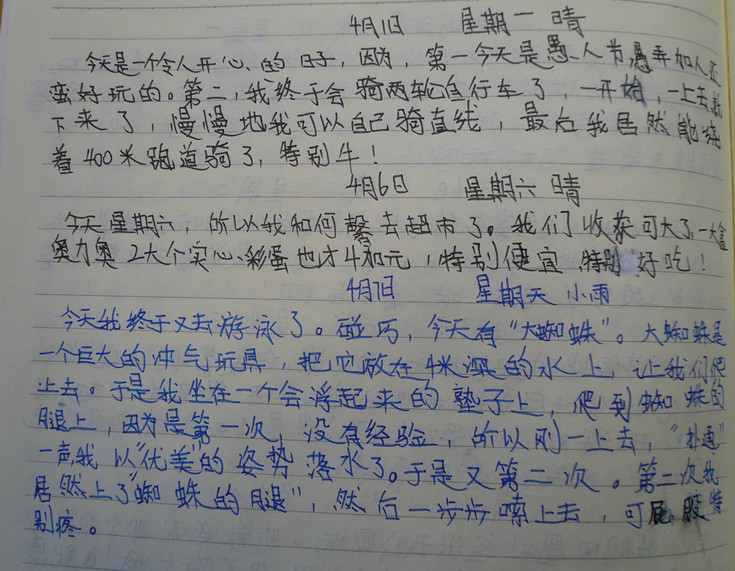 4月1日 星期一 晴
今天是一个令人开心的日子,因为,第一今天是愚人节愚弄加人还
蛮好玩的。第二,我终于会骑两轮自行车了,一开始,一上去就
下来了,慢慢地我可以自己骑直线,最后我居然能绕
着400米跑道骑了,特别牛!
4月6日 星期六 晴
今天星期六,所以我和何馨去超市了。我们收获可大了,一大盒
奥力奥2大个实心彩蛋也才4和元,特别便宜,特别好吃!
4月7日 星期天 小雨
今天我终于又去游泳了。碰巧,今天有“大蜘蛛”。大蜘蛛是
一个巨大的冲气玩具,把它放在4米深的水上,让我们爬
上去。于是我坐在一个会浮起来的垫子上,爬到蜘蛛的
腿上,因为是第一次,没有经验,所以刚一上去,“扑通”
一声,我以“优美”的姿势落水了。于是又第二次。第二次我
居然上了“蜘蛛的腿”,然后一步步嗦上去,可屁股特
别疼。